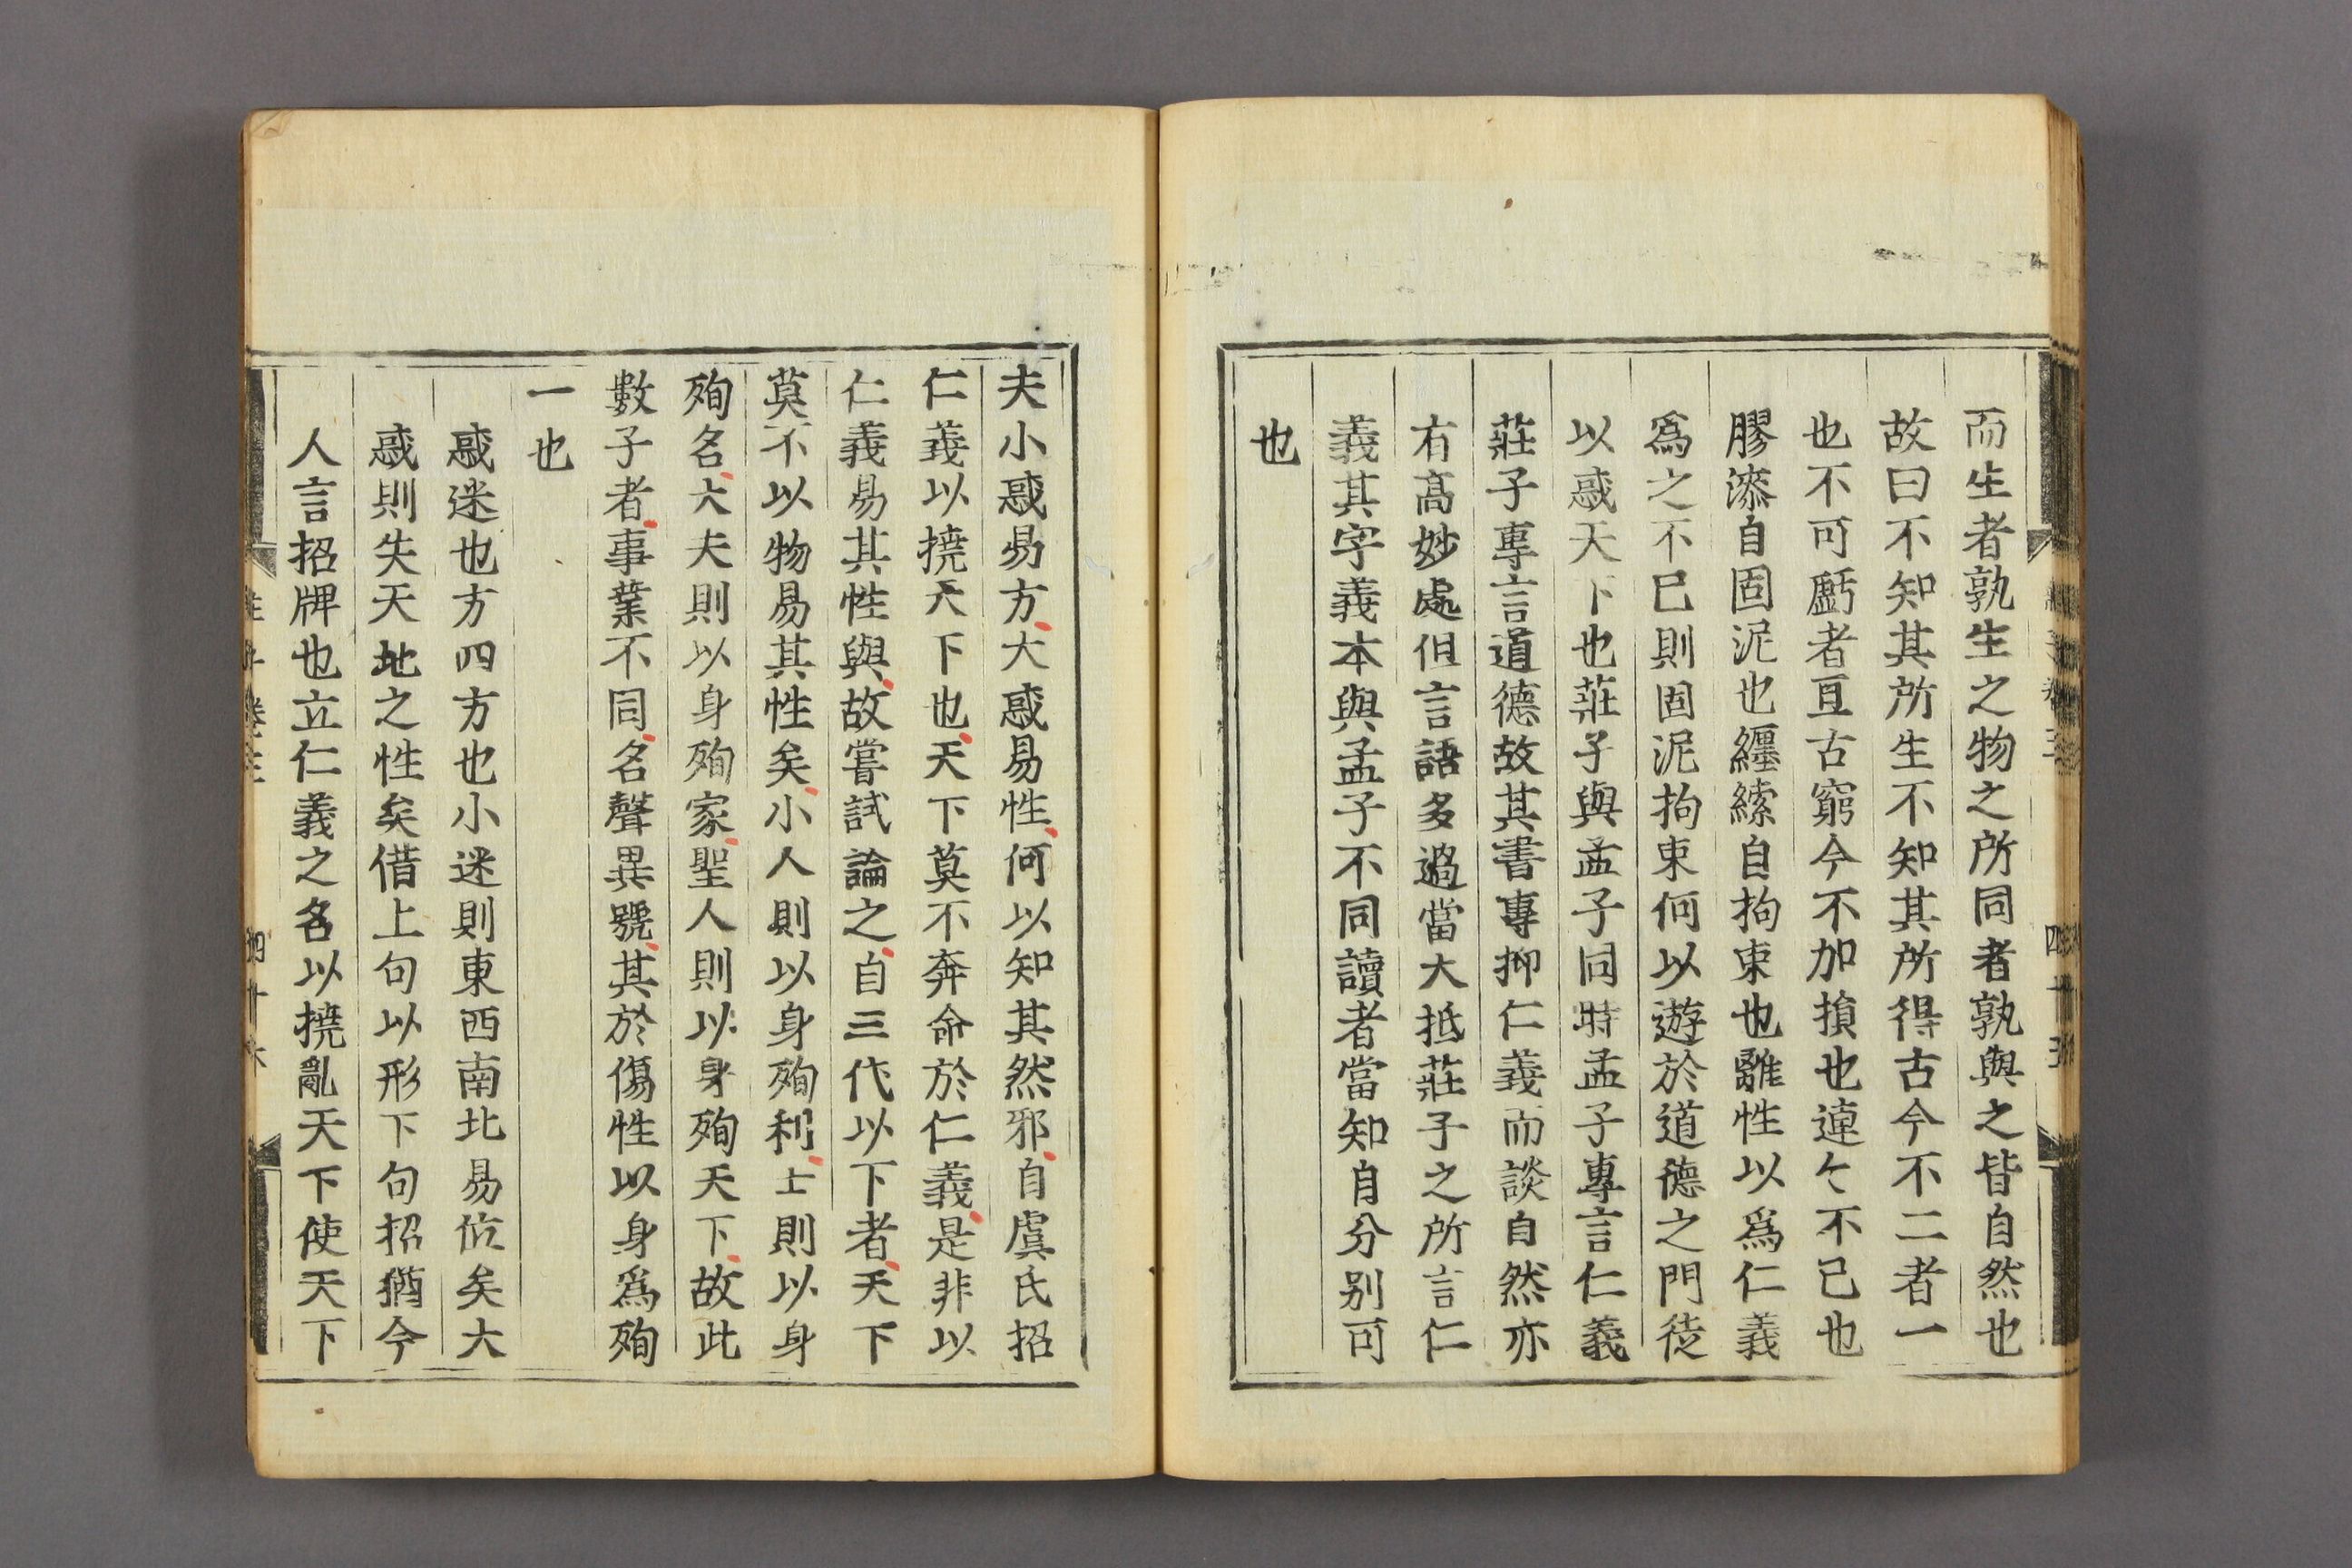 而生者孰生之物之所同者孰與之皆自然也
故曰不知其所生不知其所得古今不二者一
也不可虧者亘古窮今不加損也連々不已也
膠漆自固泥也纆繂自拘束也離性以爲仁義
爲之不已則固泥拘束何以遊於道德之門徒
以惑天下也莊子與孟子同時孟子專言仁義
莊子專言道德故其書專抑仁義而談自然亦
有高妙處但言語多過當大抵莊子之所言仁
義其字義本與孟子不同讀者當知自分别可
也
夫小惑易方大惑易性何以知其然邪自虞氏招
仁義以撓天下也天下莫不奔命於仁義是非以
仁義易其性與故嘗試論之自三代以下者天下
莫不以物易其性矣小人則以身殉利士則以身
殉名大夫則以身殉家聖人則以身殉天下故此
數子者事業不同名聲異號其於傷性以身爲殉
一也
惑迷也方四方也小迷則東西南北易位矣大
惑則失天地之性矣借上句以形下句招猶今
人言招牌也立仁義之名以撓亂天下使天下
四十六